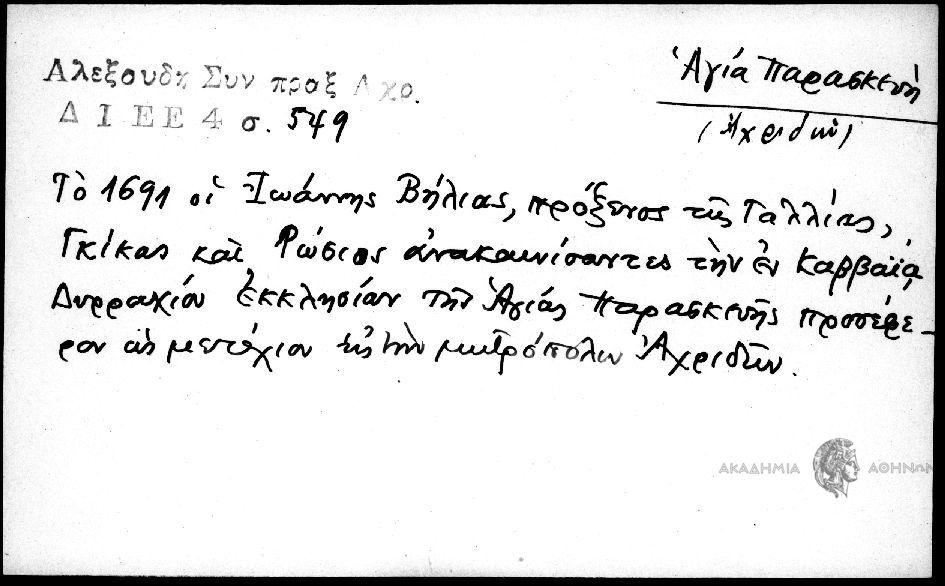 Αλεξουδη Συν πραξ Αχρ.
Δ Ι Ε Ε 4 σ. 549
Ἁγία Παρασκευὴ
(Ἀχριδῶν)
Τὸ 1691 οἱ Ἰωάννης Βήλιας, πρόξενος τῆς Γαλλίας,
Γκίκας καὶ Ρώσιος ἀνακαινίσαντες τὴν ἐν Καββαΐᾳ
Δυρραχίου ἐκκλησίαν τῆς Ἁγίας Παρασκευῆς προσέφε-
ρον ὡς μετόχιον εἰς τὴν μητρόπολιν Ἀχριδῶν.
ΑΚΑΔΗΜΙΑ ΑΘΗΝΩΝ